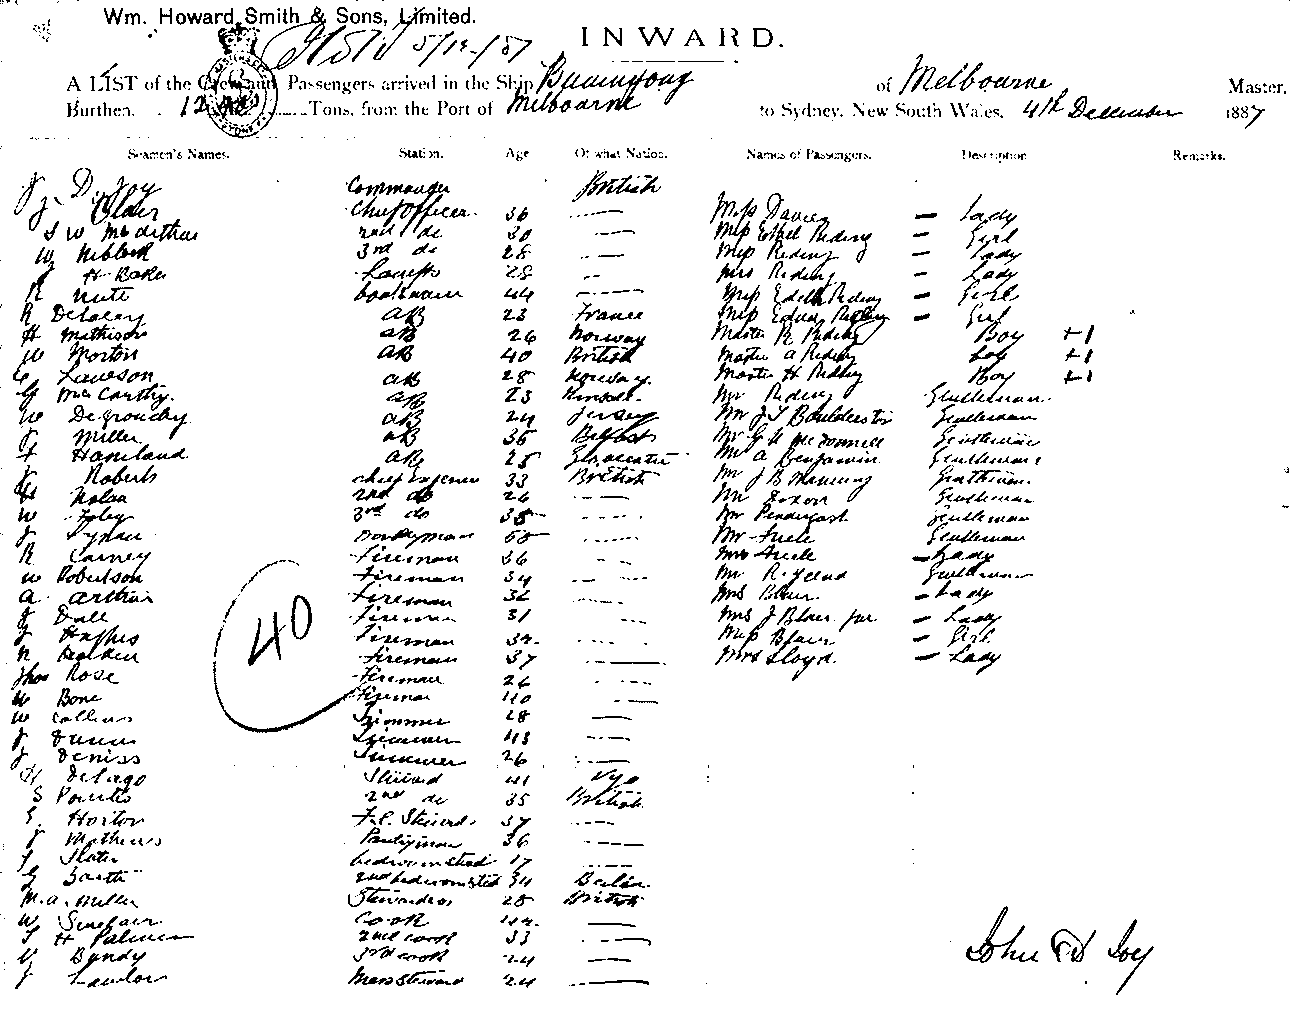 Wm. Howard Smith & Sons, Limited.
5/12/87
INWARD.
A LIST of the Crew and Passengers arrived in the Ship Buninyong of Melbourne Master,
Burthen, Tons, from the Port of Melbourne to Sydney, New South Wales, 4th December 1887
Seamen's Names. Station. Age Of what Nation. Names of Passengers. Description Remarks.
J. D. Joy Commander British
Chief Officer 36 Miss Davies — Lady
S W McArthur 2nd do 30 Miss Ethel Riding — Girl
W Niblock 3rd do 28 Miss Riding — Lady
H Baker 28 Mrs Riding — Lady
R Nute boatswain 44 Miss Edith Riding — Girl
R Delacey AB 23 France Miss Riding — Girl
H Mathison AB 26 Norway Master R Riding Boy +1
W Morton AB 40 British Master A Riding Boy +1
C Laweson AB 28 Norway Master H Riding Boy +1
McCarthy AB 23 Kinsale Mr Riding Gentleman
W Degrouchy AB 24 Jersey Mr J S Boulderston Gentleman
J Miller AB 35 Belfast Mr G McDonnell Gentleman
F Haviland AB 25 Gloucester Mr A Benjamin Gentleman
J Roberts Chief Engineer 33 British Mr J B Manning Gentleman
H Nolan 2nd do 26 Mr Dixon Gentleman
W Foley 3rd do 35 Mr Pendergast Gentleman
J Tynan Donkeyman 58 Mr Steele Gentleman
R Carney Fireman 36 Mrs Steele — Lady
W Robertson Fireman 34 Mr R. Gentleman
A. Arthur Fireman 32 Mrs Blair — Lady
J Dale Fireman 31 Mrs J Blair jur — Lady
J Hughes Fireman 34 Miss Blair — Girl
Fireman 37 Mrs Lloyd. — Lady
40
Thos Rose Fireman 26
W Bone Fireman 40
W Collins Trimmer 28
J Trimmer 43
J Deniss Trimmer 26
H Delago Steward 41
S Pointis 2nd do 35 British
E. Horton F.C. Steward 37
J Mathews Pantryman 36
J Slater bedroom steward 17
G Barth 2nd bedroom std 34 Berlin
M. A. Miller Stewardess 28 British
W Sinclair Cook 44
T H Palmer 2nd cook 33
Bundy 3rd cook 24
J Lawlor Mess Steward 24
John D Joy